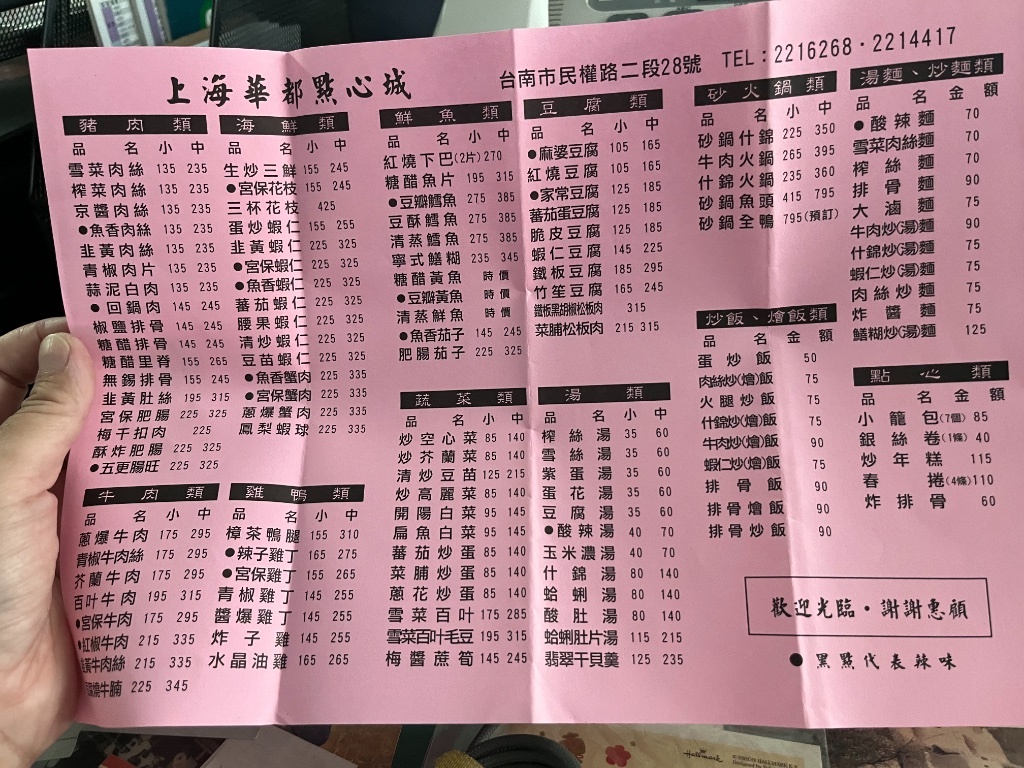 上海華都點心城
台南市民權路二段28號 TEL：2216268・2214417
豬肉類
品名 小 中
雪菜肉絲 135 235
榨菜肉絲 135 235
京醬肉絲 135 235
●魚香肉絲 135 235
韭黃肉絲 135 235
青椒肉片 135 235
蒜泥白肉 135 235
●回鍋肉 145 245
椒鹽排骨 145 245
糖醋排骨 145 245
糖醋里脊 155 265
無錫排骨 155 245
韭黃肚絲 195 315
宮保肥腸 225 325
梅干扣肉 225
酥炸肥腸 225 325
●五更腸旺 225 325
牛肉類
品名 小 中
蔥爆牛肉 175 295
青椒牛肉絲 175 295
芥蘭牛肉 175 295
百叶牛肉 195 315
●宮保牛肉 175 295
●紅椒牛肉 215 335
韭黃牛肉絲 215 335
燒牛腩 225 345
海鮮類
品名 小 中
生炒三鮮 155 245
●宮保花枝 155 245
三杯花枝 425
蛋炒蝦仁 155 255
韭黃蝦仁 225 325
●宮保蝦仁 225 325
●魚香蝦仁 225 325
蕃茄蝦仁 225 325
腰果蝦仁 225 325
清炒蝦仁 225 325
豆苗蝦仁 225 325
●魚香蟹肉 225 335
●宮保蟹肉 225 335
蔥爆蟹肉 225 335
鳳梨蝦球 225 335
雞鴨類
品名 小 中
樟茶鴨腿 155 310
●辣子雞丁 165 275
●宮保雞丁 155 265
青椒雞丁 145 255
醬爆雞丁 145 255
炸子雞 145 255
水晶油雞 165 265
鮮魚類
品名 小 中
紅燒下巴(2片) 270
糖醋魚片 195 315
●豆瓣鱈魚 275 385
豆酥鱈魚 275 385
清蒸鱈魚 275 385
寧式鱔糊 235 345
糖醋黃魚 時價
●豆瓣黃魚 時價
清蒸鮮魚 時價
●魚香茄子 145 245
肥腸茄子 225 325
蔬菜類
品名 小 中
炒空心菜 85 140
炒芥蘭菜 85 140
清炒豆苗 125 215
炒高麗菜 85 140
開陽白菜 95 145
扁魚白菜 95 145
蕃茄炒蛋 85 140
菜脯炒蛋 85 140
蔥花炒蛋 85 140
雪菜百叶 175 285
雪菜百叶毛豆 195 315
梅醬蔗筍 145 245
豆腐類
品名 小 中
●麻婆豆腐 105 165
紅燒豆腐 105 165
●家常豆腐 125 185
蕃茄蛋豆腐 125 185
脆皮豆腐 125 185
蝦仁豆腐 145 225
鐵板豆腐 185 295
竹笙豆腐 165 245
鐵板黑胡椒松板肉 315
菜脯松板肉 215 315
湯類
品名 小 中
榨絲湯 35 60
雪絲湯 35 60
紫蛋湯 35 60
蛋花湯 35 60
豆腐湯 35 60
●酸辣湯 40 70
玉米濃湯 40 70
什錦湯 80 140
蛤蜊湯 80 140
酸肚湯 80 140
蛤蜊肚片湯 115 215
翡翠干貝羹 125 235
砂火鍋類
品名 小 中
砂鍋什錦 225 350
牛肉火鍋 265 395
什錦火鍋 235 360
砂鍋魚頭 415 795
砂鍋全鴨 795(預訂)
炒飯、燴飯類
品名 金額
蛋炒飯 50
肉絲炒(燴)飯 75
火腿炒飯 75
什錦炒(燴)飯 75
牛肉炒(燴)飯 90
蝦仁炒(燴)飯 75
排骨飯 90
排骨燴飯 90
排骨炒飯 90
湯麵、炒麵類
品名 金額
●酸辣麵 70
雪菜肉絲麵 70
榨絲麵 70
排骨麵 90
大滷麵 75
牛肉炒(湯)麵 90
什錦炒(湯)麵 75
蝦仁炒(湯)麵 75
肉絲炒麵 75
炸醬麵 75
鱔糊炒(湯)麵 125
點心類
品名 金額
小籠包(7個) 85
銀絲卷(1條) 40
炒年糕 115
春捲(4條) 110
炸排骨 60
歡迎光臨・謝謝惠顧
●黑點代表辣味
Hallmark